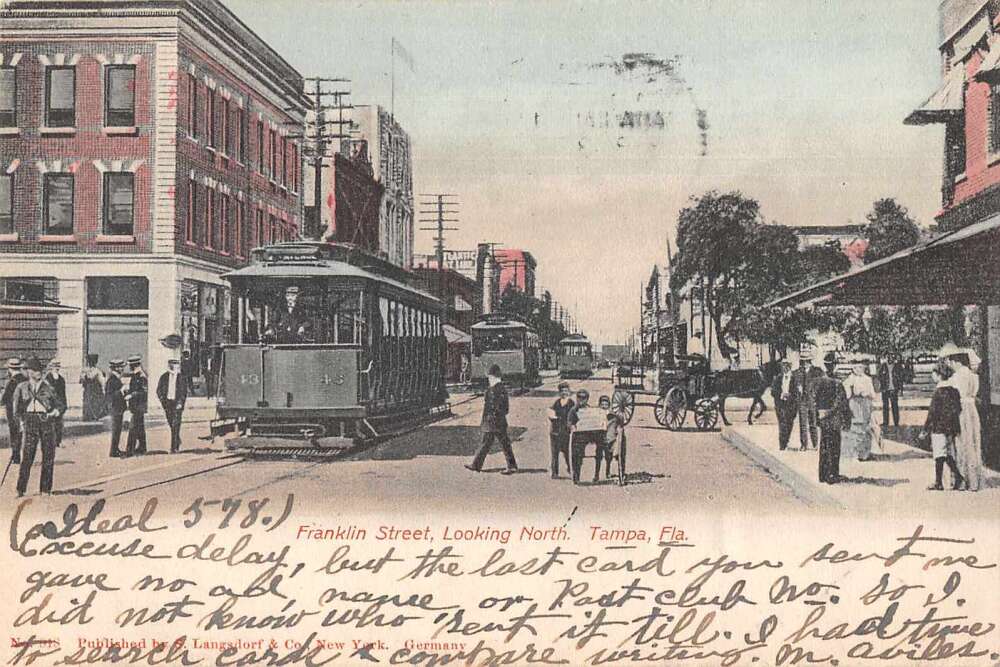 ATLANTIC
43 43
(Ideal 578.)
Franklin Street, Looking North. Tampa, Fla.
Excuse delay, but the last card you sent me
gave no ad, name or Post club No. So I
did not know who sent it till I had time
Published by S. Langsdorf & Co., New York. Germany
to search cards & compare writing. M. Aviles.